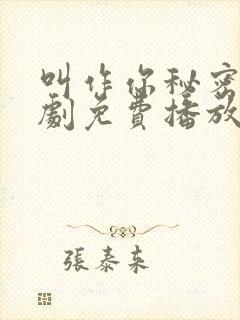 叫作你秘密
劇免費播放
張泰来